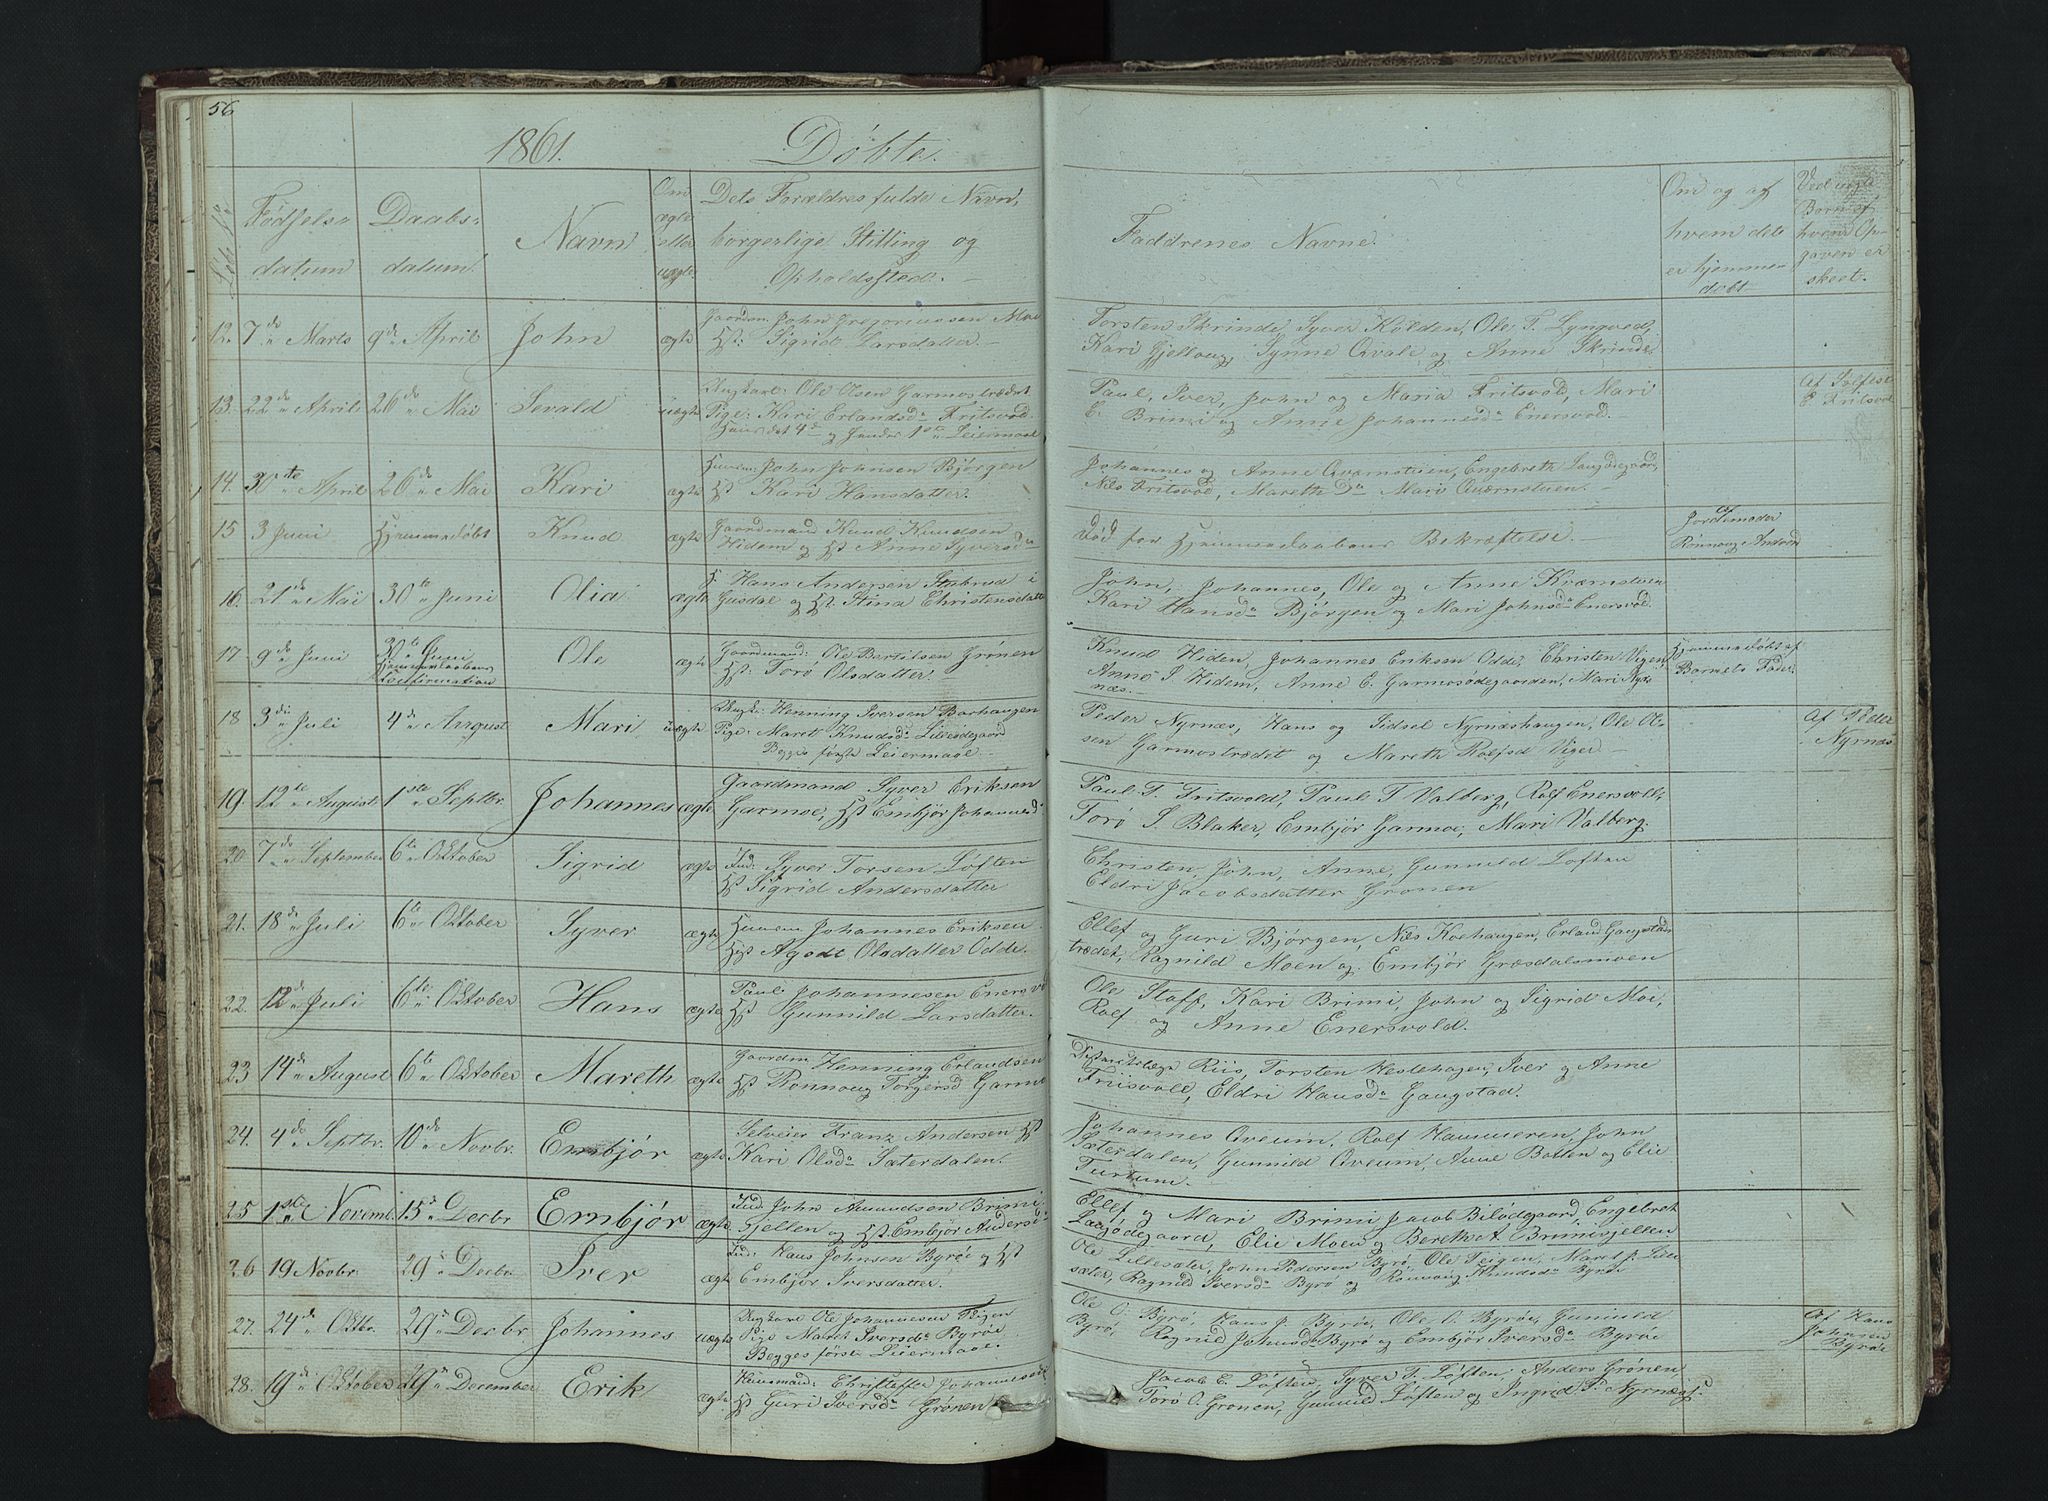 56
1861. Døbte.
Løbe No
Fødsels-
datum
Daabs-
datum.
Navn
Om
ægte
eller
uægte.
Dets Forældres fulde Navn,
borgerlige Stilling og
Opholdssted. -
Faddrenes Navne.
Om og af
hvem det
er hjemme
døbt
Ved uægte
Børn af
hvem Op-
gaven er
skeet.
12. 7de Marts 9de April John ægte
Gaardm: John Gregoriussen Moe
Hst: Sigrid Larsdatter. -
Torsten Skrinde, Syver Kolden, Ole T. Lyngved,
Kari Gjellaug, Synne Qvale og Anne Skrinde.
13. 22de April 26de Mai Sevald uægte
Ungkarl: Ole Olsen Garmostrædet
Pige: Kari Erlandsd. Fritsvold.
Hans det 4de og hendes 1ste Leiermaal
Paul, Iver, John og Maria Fritsvold, Mari
E. Brimi og Anne Johannesd. Enersvold. -
Af
E. Fritsvold
14. 30te April 26de Mai Kari ægte
Huusm: John Johnsen Bjørgen
Hst Kari Hansdatter. -
Johannes og Anne Qvarnstuen, Engebreth
Nils Fritsvold, Mareth Do Mari Qvarnstuen. -
15 3 Juni Hjemmedøbt Knud ægte
Gaardmand Knud Knudsen
Hidem og Hst Anne Syversd.
Død før Hjemmedaabens Bekræftelse. -
af
Jordemoder
Rønnoug Andvord
16. 21de Mai 30te Juni Olia ægte
F. Hans Andersen i
og Hst: Stina Christensdatter
John, Johannes, Ole og Anne Kvernstuen
Kari Hansd. Bjørgen og Mari Johnsd. Enersvold.
17 9de Juni 30te Juni
Hjemmedaabens
Confirmation
Ole ægte
Gaardmand: Ole Bertilsen Grønen
Hst: Torø Olsdatter. -
Knud Hidem, Johannes Eriksen Odde, Christen Vigen,
Anne J. Hidem, Anne E. Garmosødegaarden, Mari Nyr-
næs. -
Hjemmedøbt af
Barnets Fader
18 3die Juli 4de August Mari uægte
Ungk: Henning Iversen Barhaugen
Pige: Maret Knudsd.
Begges første Leiermaal -
Peder Nyrnæs, Hans og Sidsel Nyrnæshaugen, Ole Ol-
sen Garmostrædet og Mareth Rolfsd Viger -
Af Peder
Nyrnæs
19. 12te August 1ste Septbr. Johannes ægte
Gaardmand Syver Eriksen
Garmoe, Hst Embjør Johannesd.
Paul T. Fritsvold, Paul T Valberg, Rolf Enersvold,
Torø S. Blaker, Embjør Garmoe, Mari Valberg.
20 7de September 6te Oktober Sigrid ægte
Ind: Syver Torsen Løften
Hst Sigrid Andersdatter
Christen, John, Anne, Gunnild Løften
Eldri Jacobsdatter Grønen
21. 18de Juli 6te Oktober Syver ægte
Huusm Johannes Eriksen
Hst Olsdatter Odde.
Ellef og Guri Bjørgen, Nils Koehaugen, Erland Gaugstad-
trædet, Ragnild Moen og Embjør Græsdalsmoen
22. 12de Juli 6te Oktober Hans ægte
Paul Johannesen Enersvold
Hst Gunnild Larsdatter.
Ole Staff, Kari Brimi, John og Sigrid Moe,
Rolf og Anne Enersvold.
23 14de August 6te Oktober Mareth ægte
Gaardm Henning Erlandsen
Hst Rønnoug Torgersd Garmo
Distriktslæge Riis, Torsten Hestehagen, Iver og Anne
Frisvold, Eldri Hansd. Gaugstad.
24. 4de Septbr. 10de Novbr. Embjør ægte
Selveier Franz Andersen Hst
Kari Olsd. Sæterdalen.
Johannes Qveum, Rolf Hammeren, John
Sæterdalen, Gunnild Qveum, Anne Botten og Elie
Furtum. -
25 1ste Novemb. 15de Decbr Embjør ægte
Ind John Amundsen Brimi
Gjellen og Hst. Embjør Andersd.
Ellef og Mari Brimi Jacob Bilødegaard, Engebret
Laugødegaard, Elie Moen og Brimisjellen
26 19 Novbr. 29de Decbr Iver ægte
Ind: Hans Johnsen Byrøe og Hst
Embjør Iversdatter.
Ole Lillesæter, John Pedersen Byrø, Ole Teigen, Maret J. Lille-
sæter, Ragnild Iversd. Byrø og Rønnoug Knudsd. Byrøe
27. 24de Oktbr. 29de Decbr. Johannes uægte
Ungkarl Ole Johannesen Teigen
Pige Maret Iversd. Byrøe
Begges første Leiermaal.
Ole O. Byrø, Hans J. Byrøe, Ole O. Byrøe, Gunnild
Byrø, Ragnild Johnsd. Byrø og Embjør Iversd. Byrøe
Af Hans
Johnsen
Byrøe
28. 19de Oktober 29de December Erik ægte
Huusmand: Christoffer Johannessen
Hst Guri Iversd. Grønen
Jacob E. Løften, Syver T. Løften, Anders Grønen,
Torø O. Grønen, Gunnild Løften og Ingrid P. Nyrnæs.